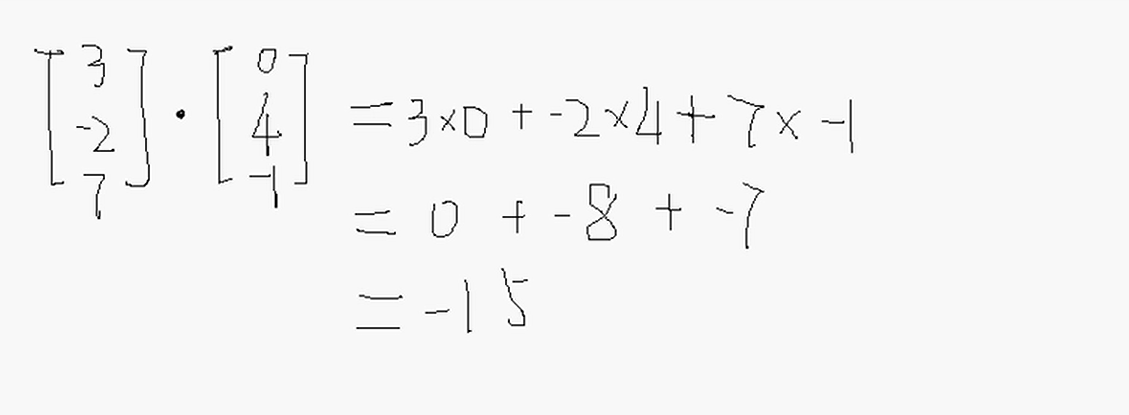 [3 -2 7] · [0 4 -1] = 3×0 + -2×4 + 7× -1
= 0 + -8 + -7
= -15